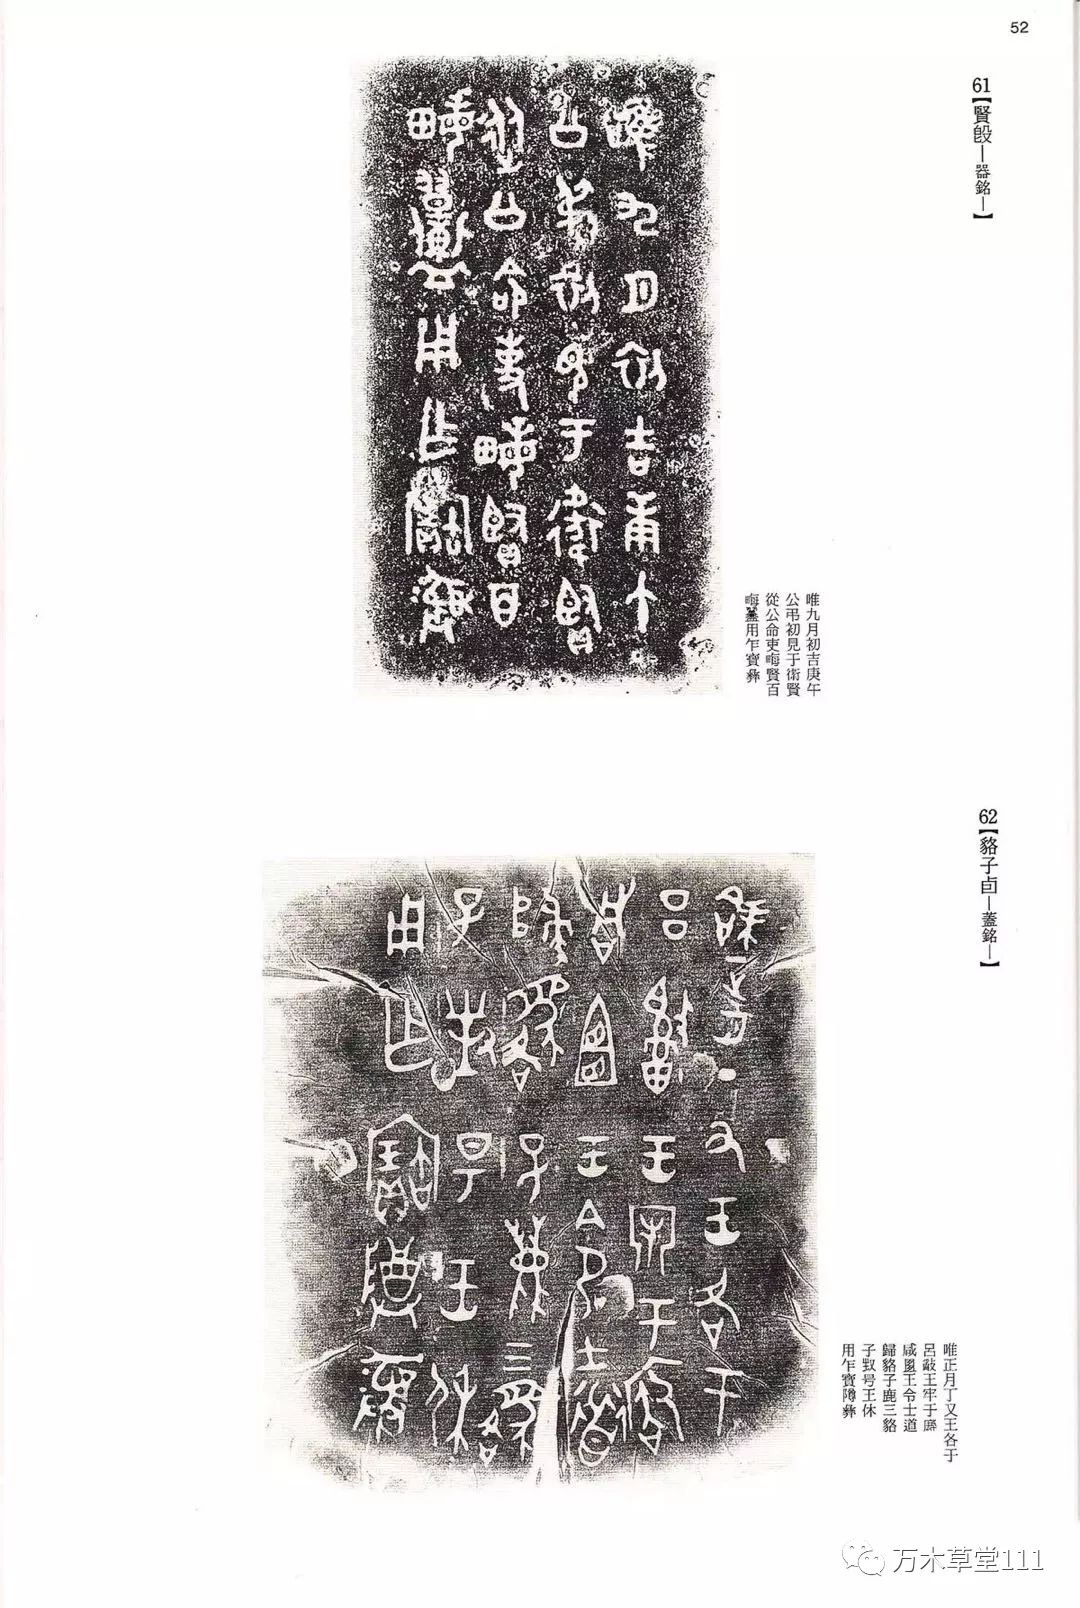 52
61【賢𣪘—器銘—】
唯九月初吉庚午
公弔初見于衛賢
從公命吏晦賢百
晦用乍寶彝
62【貉子卣—蓋銘—】
唯正月丁又王各于
呂王牢于
咸王令士道
歸貉子鹿三貉
子对号王休
用乍寶障彝
万木草堂111